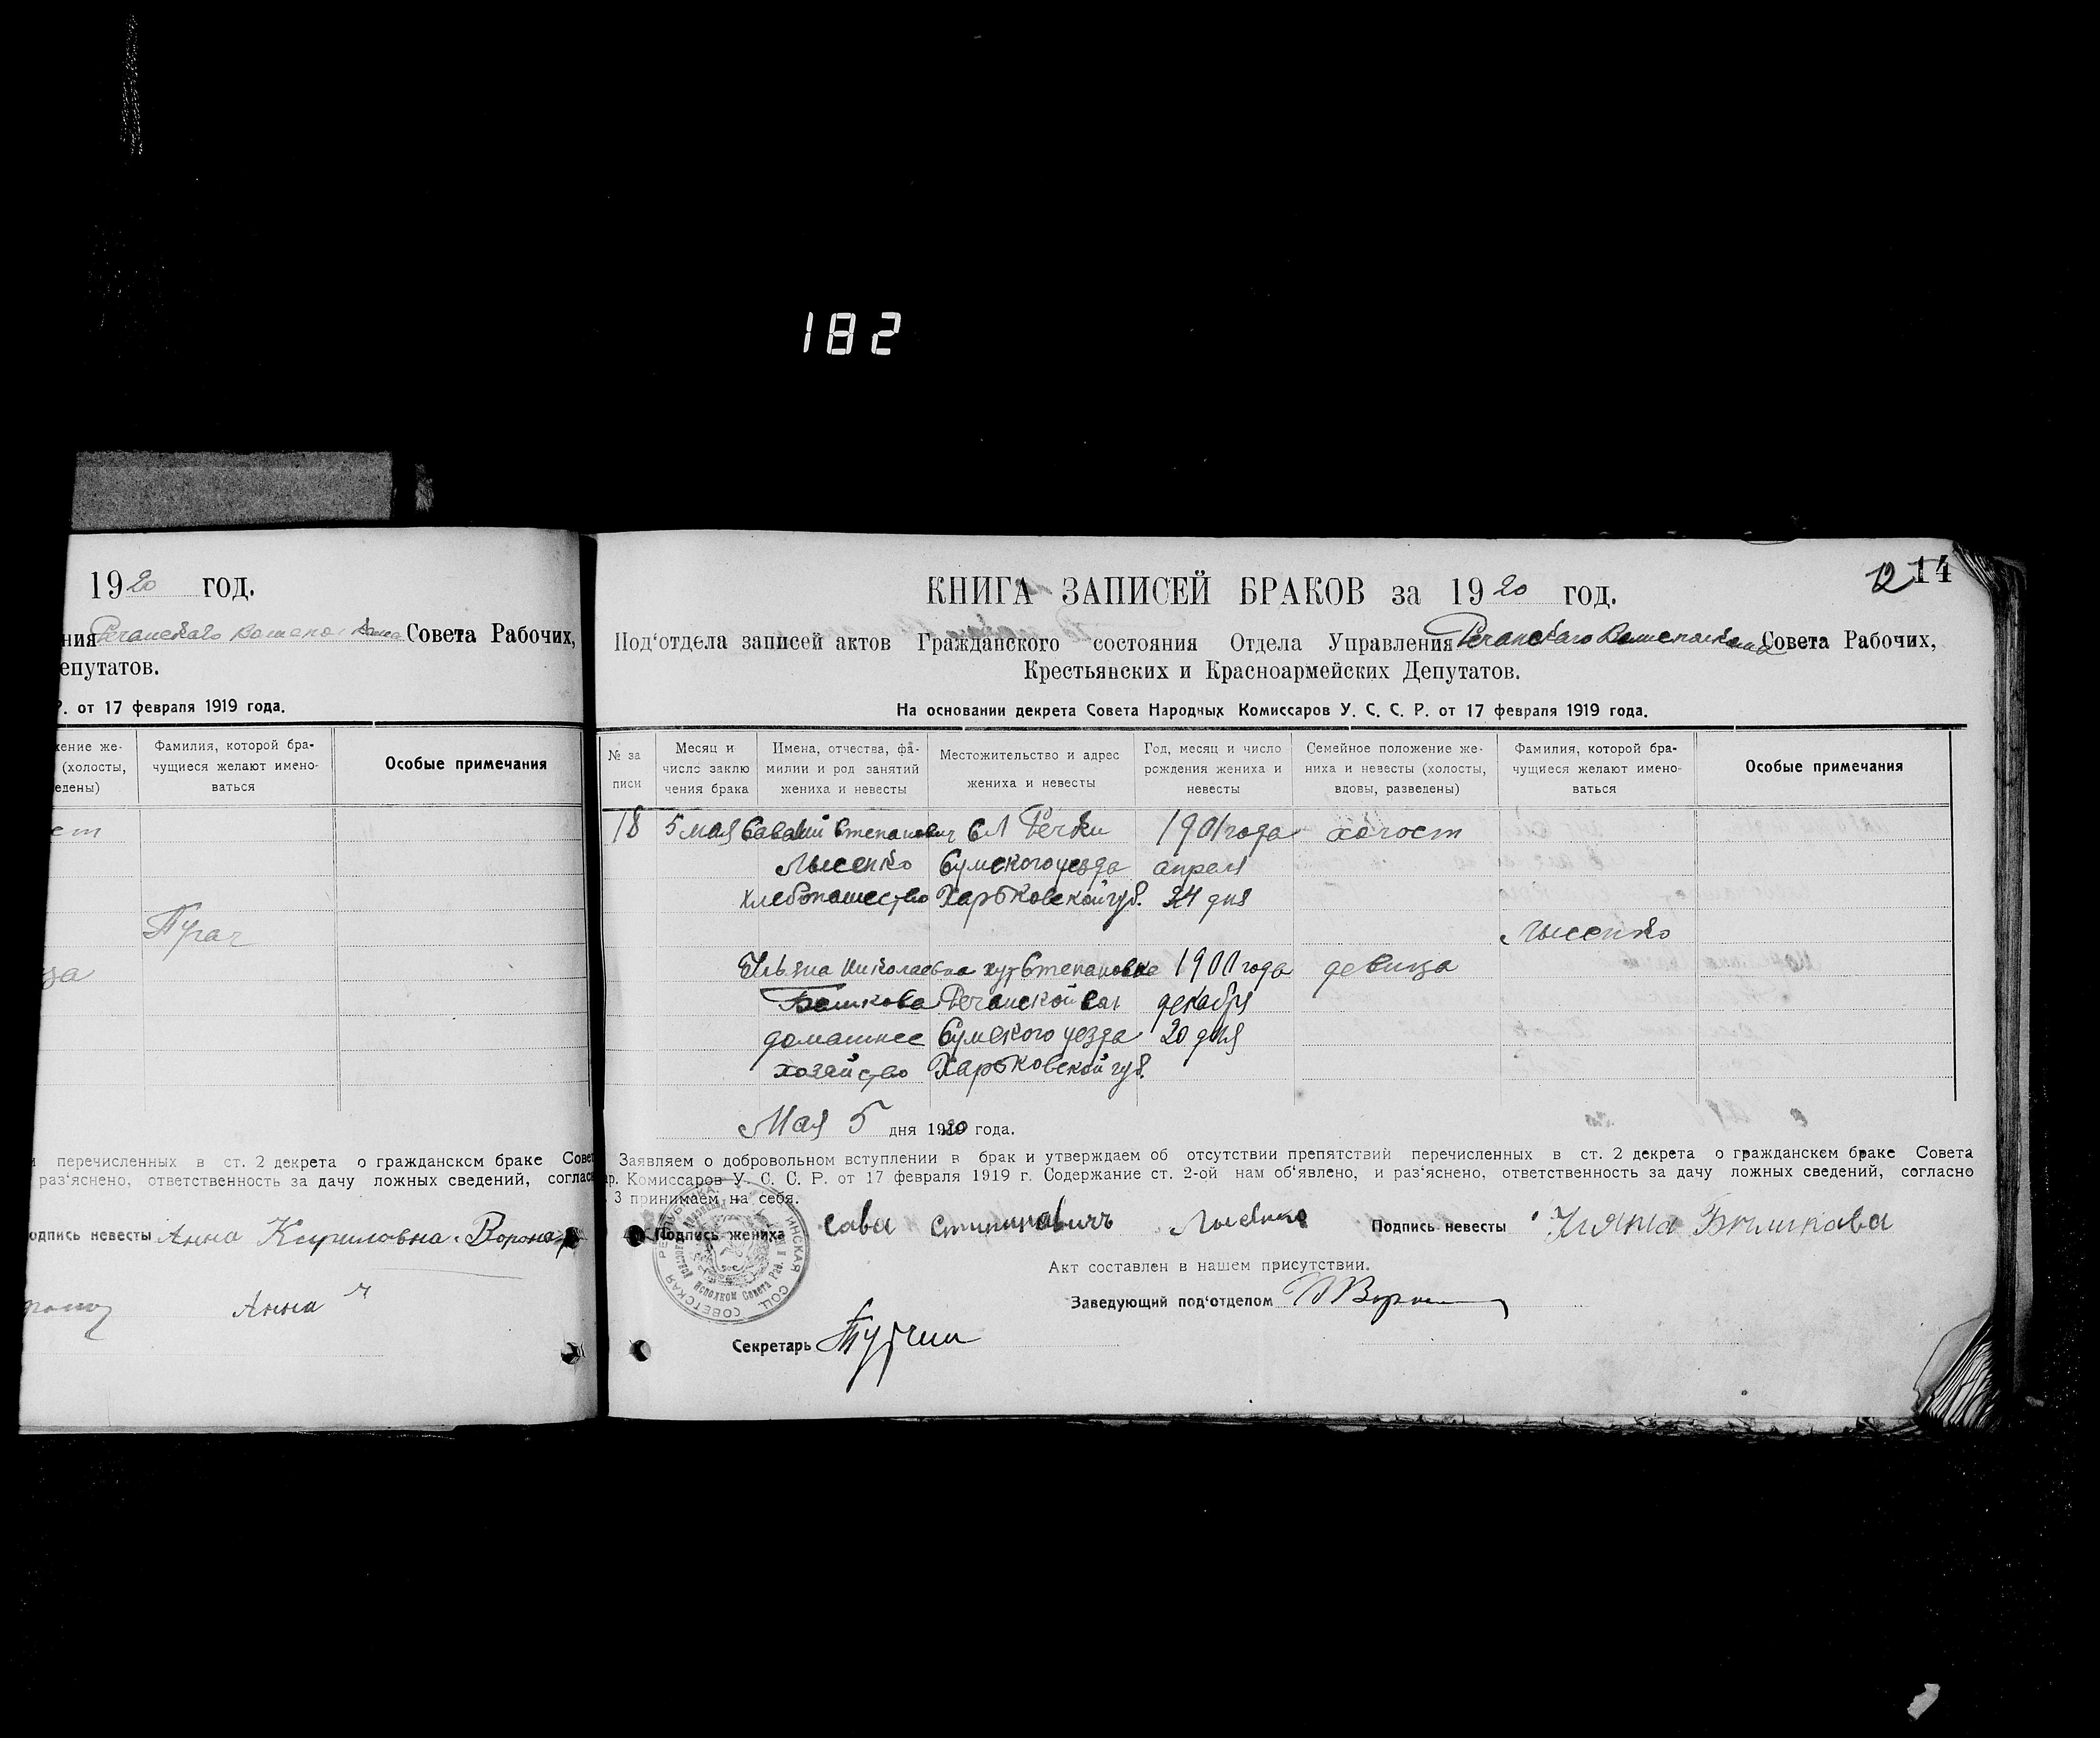 182
1920 год.
ния Речанскаго Совета Рабочих,
епутатов.
Р. от 17 февраля 1919 года.
жение же-
(холосты,
едены)
Фамилия, которой бра-
чущиеся желают имено-
ваться
Особые примечания
ст
Пугач
ца
и перечисленных в ст. 2 декрета о гражданском браке Совет
раз‘яснено, ответственность за дачу ложных сведений, соглас
одпись невесты Анна Кириловна Ворона
Анна
12 14
КНИГА ЗАПИСЕЙ БРАКОВ за 1920 год.
Под‘отдела записей актов Гражданского состояния Отдела Управления Речанскаго Совета Рабочих,
Крестьянских и Красноармейских Депутатов.
На основании декрета Совета Народных Комиссаров У. С. С. Р. от 17 февраля 1919 года.
№ за
писи
Месяц и
число заклю
чения брака
Имена, отчества, фа-
милии и род занятий
жениха и невесты
Местожительство и адрес
жениха и невесты
Год, месяц и число
рождения жениха и
невесты
Семейное положение же-
ниха и невесты (холосты,
вдовы, разведены)
Фамилия, которой бра-
чущиеся желают имено-
ваться
Особые примечания
18 5 мая Саватий Степанович Сл Речки 1901 года холост
Лысенко Сумского уезда апреля
хлебопашество Харьковской губ. 24 дня
Лысенко
Ульяна Николаевна хут Степановка 1900 года девица
Башкова Речанской вол декабря
домашнее Сумского уезда 20 дня
хозяйство Харьковской губ.
Мая 5 дня 1920 года.
Заявляем о добровольном вступлении в брак и утверждаем об отсутствии препятствий перечисленных в ст. 2 декрета о гражданскем браке Совета
ар. Комиссаров У. С. С. Р. от 17 февраля 1919 г. Содержание ст. 2-ой нам об‘явлено, и раз‘яснено, ответственность за дачу ложных сведений, согласно
3 принимаем на себя.
Подпись жениха Сава Лысенко Подпись невесты Уляна Башкава
Акт составлен в нашем присутствии.
Заведующий под‘отделом
Секретарь